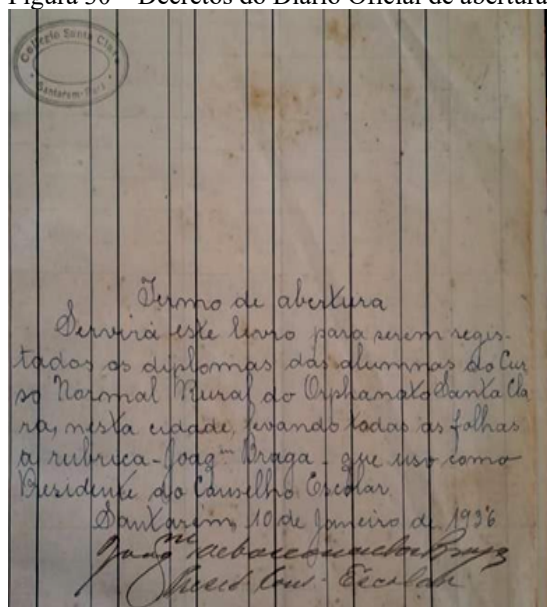 Figura 50 – Decretos do Diário Oficial de abertura
Collegio Santa Clara
Santarem-Pará
Termo de abertura
Servirá este livro para serem regis-
tados os diplomas das alumnas do Cur
so Normal Rural do Orphanato Santa Cla
ra, nesta cidade, levando todas as folhas
a rubrica - Joaqᵐ Braga - que uso como
Presidente do Conselho Escolar.
Santarém, 10 de Janeiro de 1936
Joaqᵐ Braga
Presid Cons. Escolar